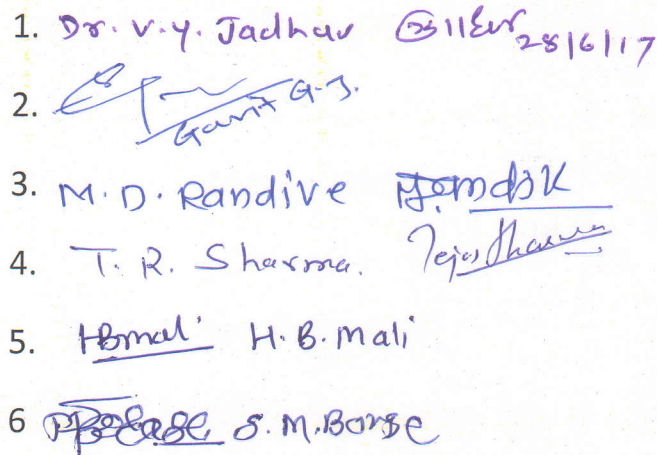 1. Dr. V. Y. Jadhav 28/6/17
2. Gavit G. J.
3. M. D. Randive
4. T. R. Sharma. Tejas Sharma
5. HBmali H. B. Mali
6 S. M. Borse